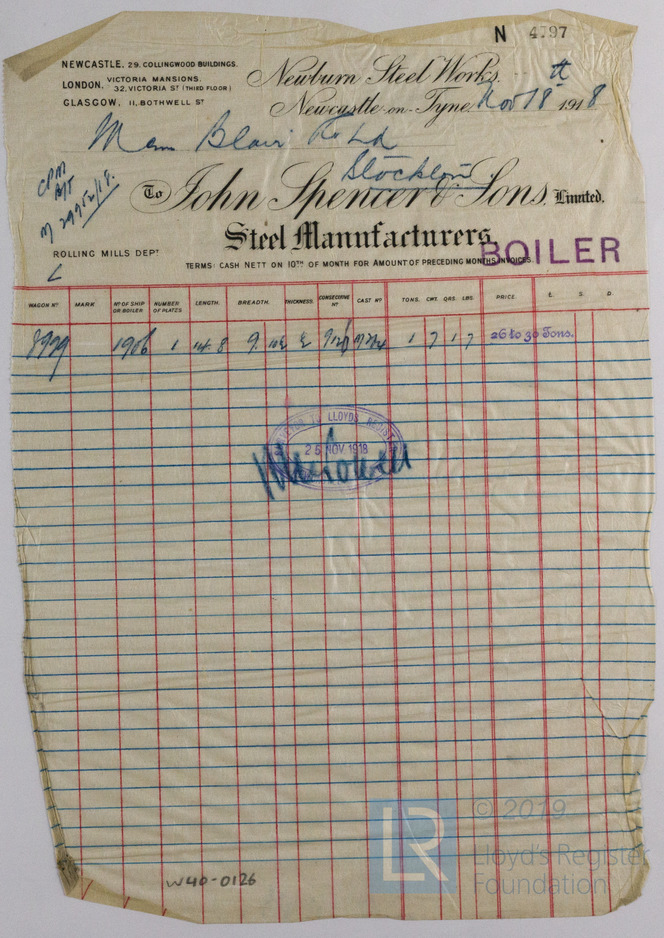 N 4797
NEWCASTLE, 29. COLLINGWOOD BUILDINGS.
LONDON, VICTORIA MANSIONS.
32, VICTORIA ST (THIRD FLOOR)
GLASGOW, 11, BOTHWELL ST
Newburn Steel Works.
Newcastle-on-Tyne Nov 18th 1918
Blair & Co Ld
Stockton
To John Spencer & Sons, Limited.
Steel Manufacturers
ROLLING MILLS DEPT
TERMS: CASH NETT ON 10TH OF MONTH FOR AMOUNT OF PRECEDING MONTHS INVOICES.
BOILER
WAGON No. MARK No OF SHIP OR BOILER NUMBER OF PLATES LENGTH. BREADTH. THICKNESS. CONSECUTIVE No CAST No TONS. CWT. QRS. LBS. PRICE. £. S. D.
1906 1 14. 8 1 7 1 7 26 to 30 Tons.
LLOYDS REGISTER
25 NOV 1918
W40-0126
LR
© 2019
Lloyd's Register
Foundation